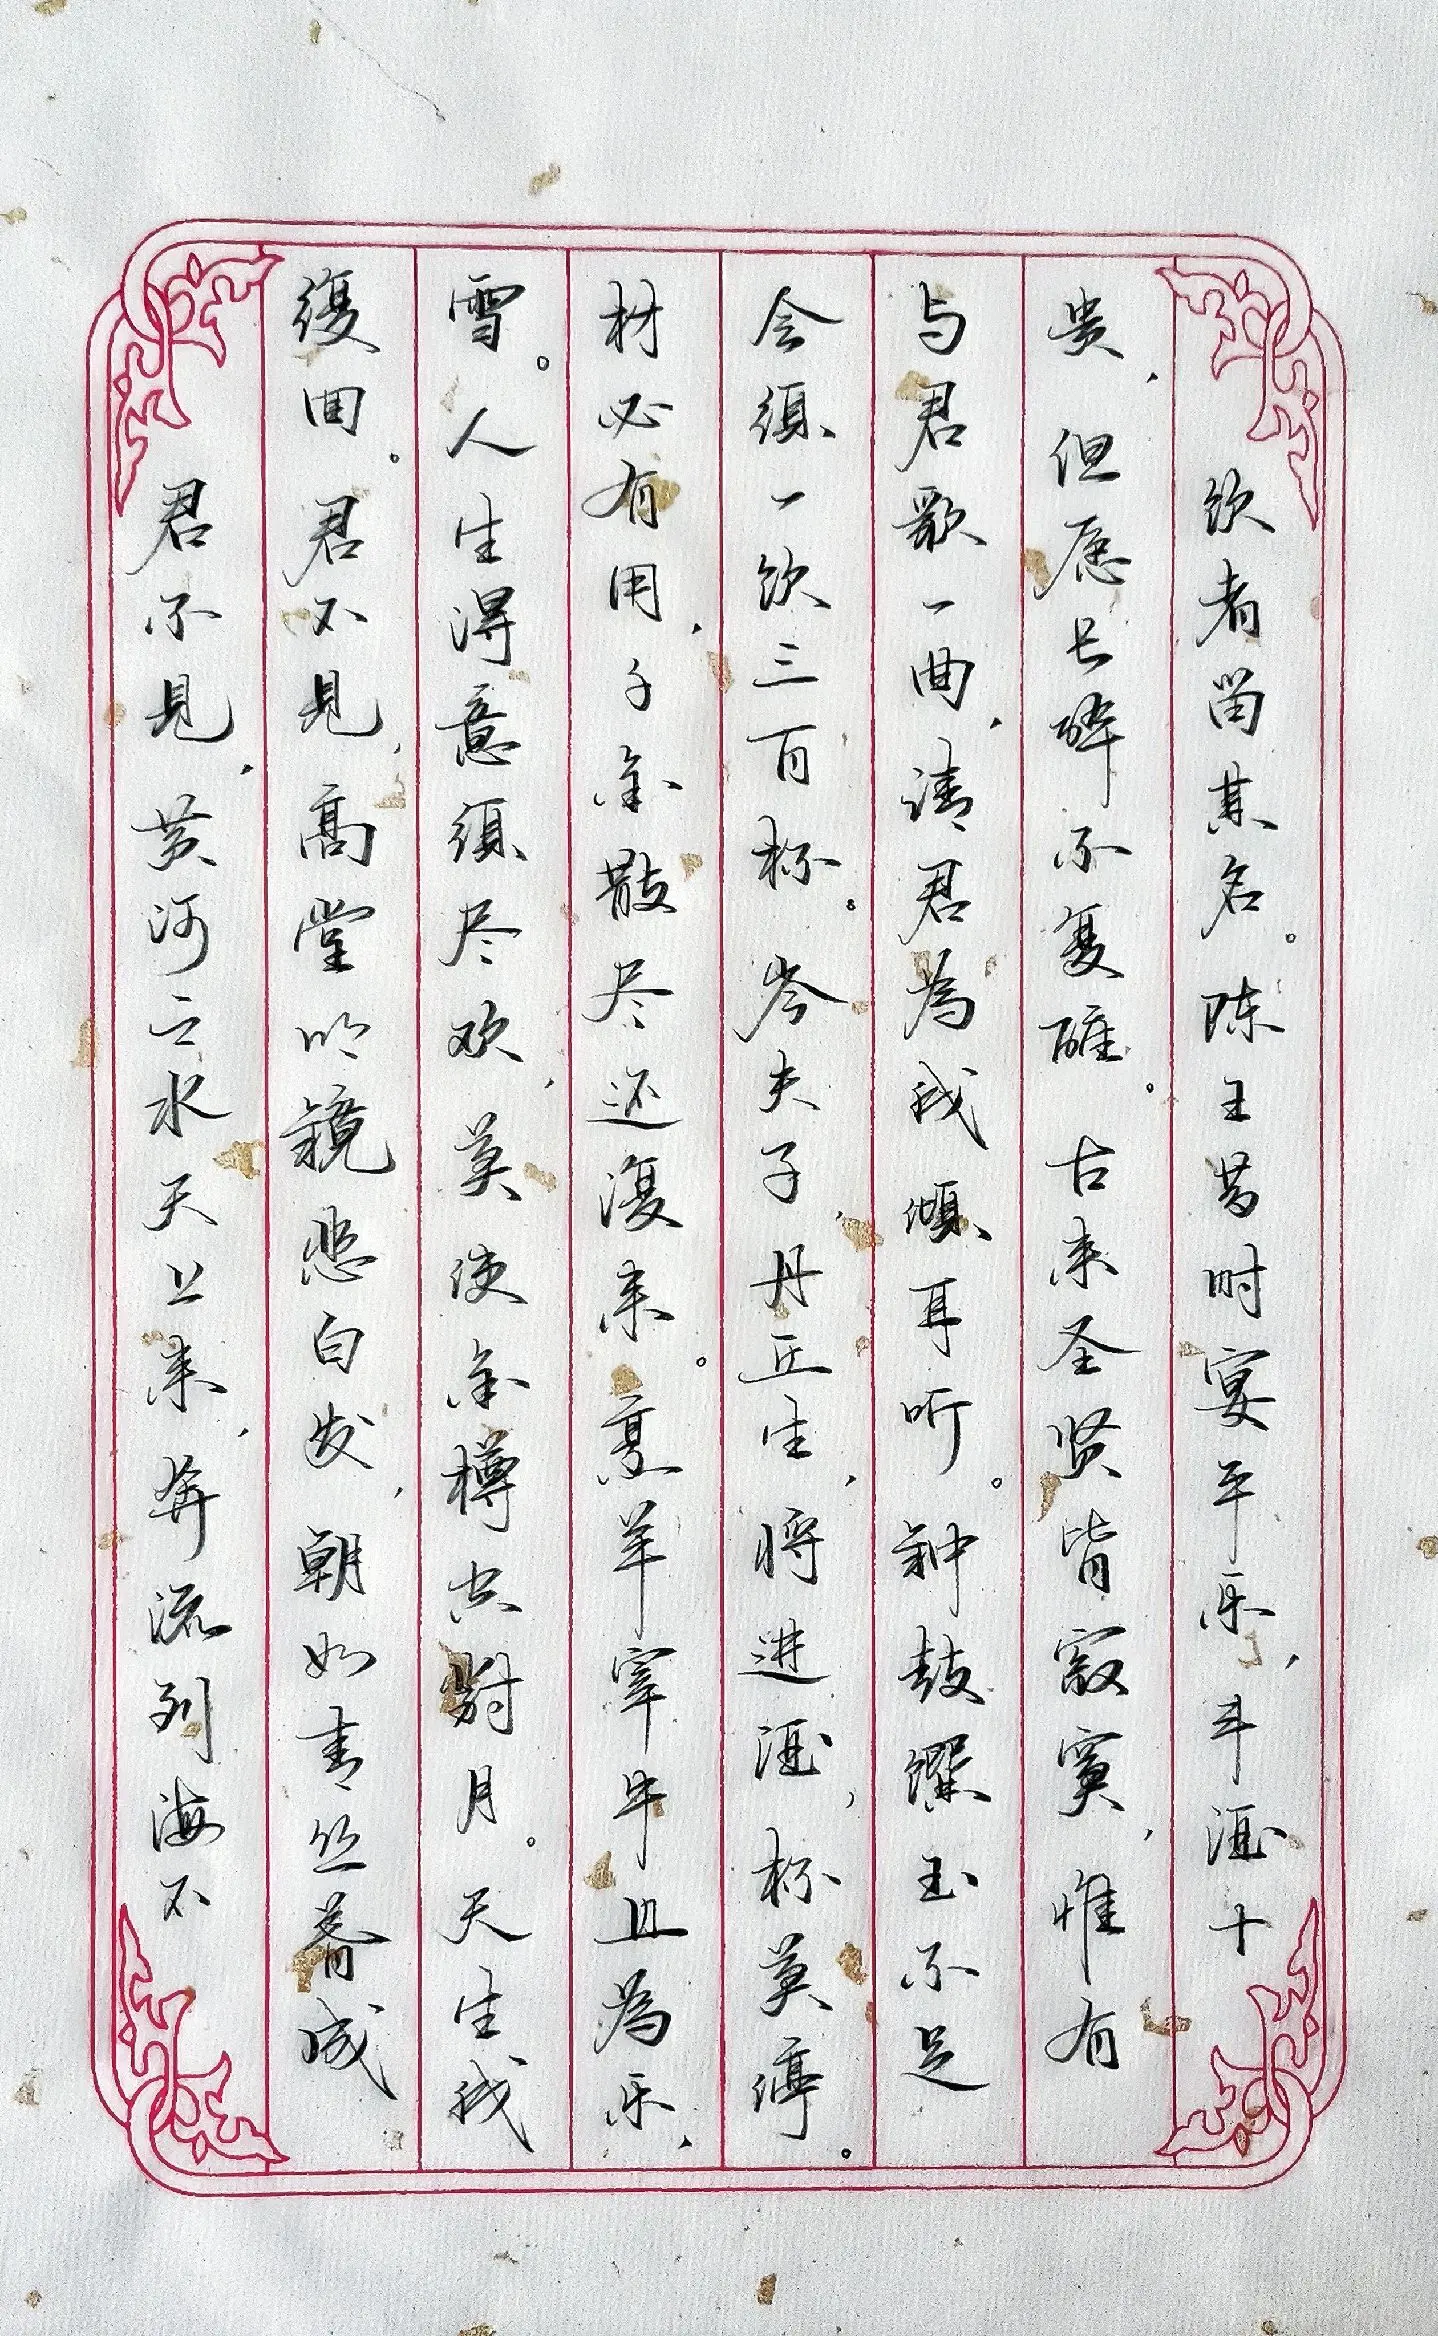 君不见，黄河之水天上来，奔流到海不
復回。君不见，高堂明镜悲白发，朝如青丝暮成
雪。人生得意須尽欢，莫使金樽共對月。天生我
材必有用，千金散尽还復来。烹羊宰牛且為乐，
会須一饮三百杯。岑夫子，丹丘生，将进酒，杯莫停。
与君歌一曲，请君為我傾耳听。钟鼓馔玉不足
贵，但愿长醉不复醒。古来圣贤皆寂寞，惟有
饮者留其名。陈王昔时宴平乐，斗酒十